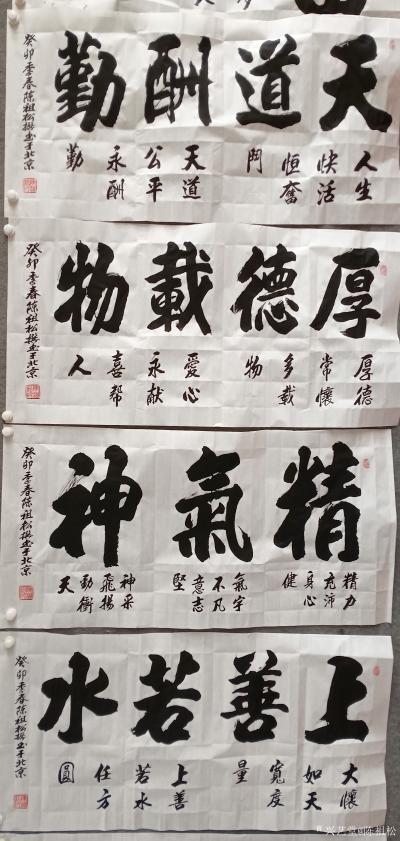 天道酬勤
人生快活恒奮鬥
天道公平永酬勤
癸卯季春陳祖松撰书于北京
厚德載物
厚德常懷多載物
愛心永献喜帮人
癸卯季春陳祖松撰书于北京
精氣神
精力充沛身心健
氣宇不凡意志堅
神采飛揚勁衝天
癸卯季春陳祖松撰书于北京
上善若水
大懷如天寬度量
上善若水任方圓
癸卯季春陳祖松撰书于北京
兴艺堂@陈祖松